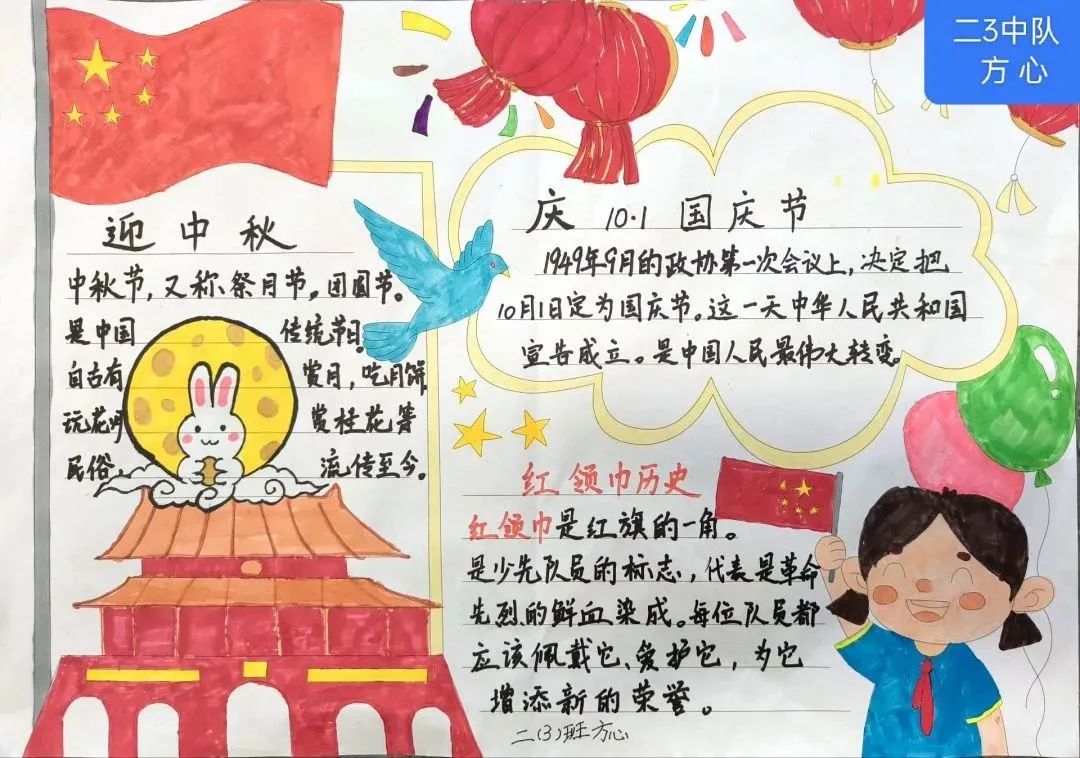 二3中队
方心
迎中秋
中秋节，又称祭月节，团圆节。
是中国 传统节日。
自古有 赏月，吃月饼
玩花 赏桂花等
民俗， 流传至今。
庆 10·1 国庆节
1949年9月的政协第一次会议上，决定把
10月1日定为国庆节。这一天中华人民共和国
宣告成立。是中国人民最伟大转变。
红领巾历史
红领巾是红旗的一角。
是少先队员的标志，代表是革命
先烈的鲜血染成。每位队员都
应该佩戴它、爱护它，为它
增添新的荣誉。
二(3)班方心